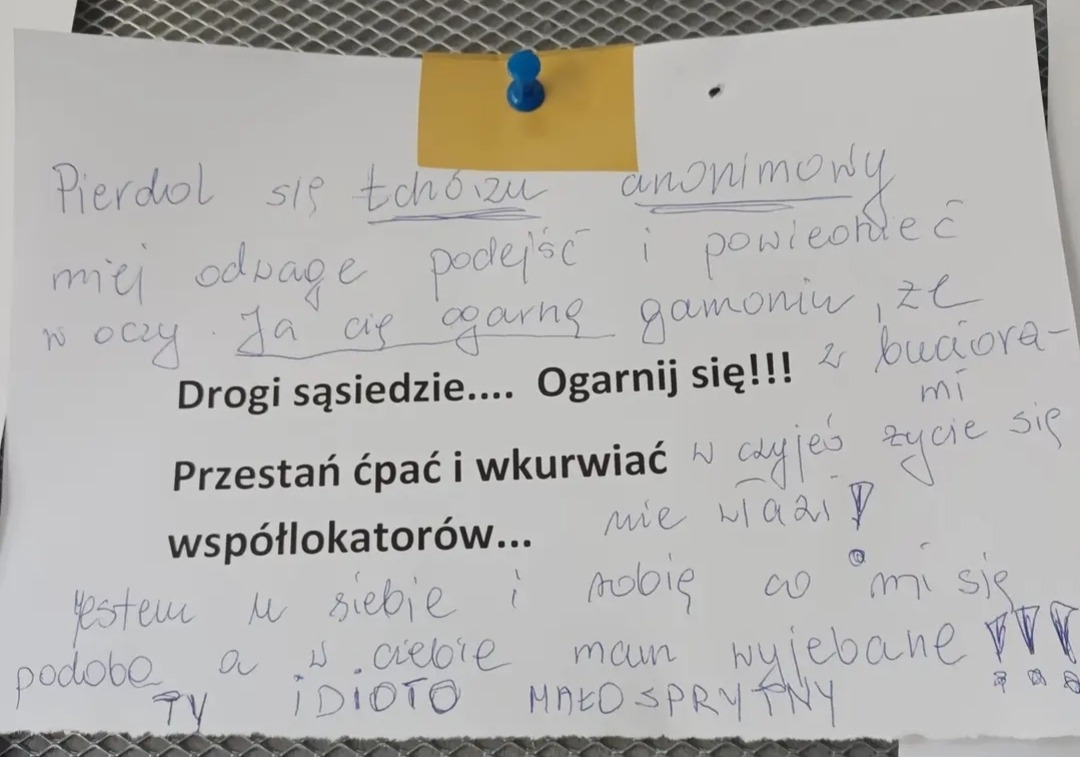 Pierdol się tchórzu anonimowy
miej odwagę podejść i powiedzieć
w oczy. Ja cię ogarnę gamoniu, że
Drogi sąsiedzie.... Ogarnij się!!! z buciora-
mi
Przestań ćpać i wkurwiać w czyjeś życie się
współlokatorów... nie włazi!
Jestem u siebie i robię co mi się
podoba a w ciebie mam wyjebane!!!
TY IDIOTO MAŁO SPRYTNY